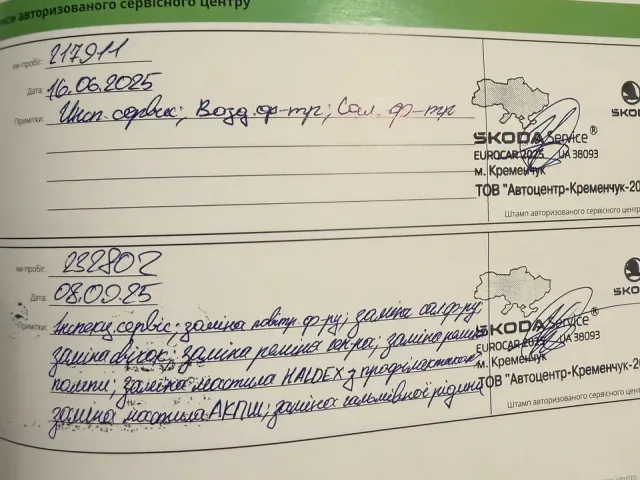 иси авторизованого сервісного центру
км-пробіг: 217911
Дата: 16.06.2025
Примітки: Инсп. сервіс; Возд. ф-тр; Сал. ф-тр
SKODA Service®
EUROCAR 2025 UA 38093
м. Кременчук
ТОВ "Автоцентр-Кременчук-20
Штамп авторизованого сервісного центр
SKO
км-пробіг: 232802
Дата: 08.09.25
Примітки: Інспекц. сервіс; заміна повітр. ф-ру; заміна сал. ф-ру;
заміна свічок; заміна ременя ген-ра; заміна ременя
помпи; заміна мастила HALDEX з профілактикою
заміна мастила АКПШ; заміна гальмівної рідини
SKODA Service®
EUROCAR 2025 UA 38093
м. Кременчук
ТОВ "Автоцентр-Кременчук-20
Штамп авторизованого сервісного це
SKO
центр